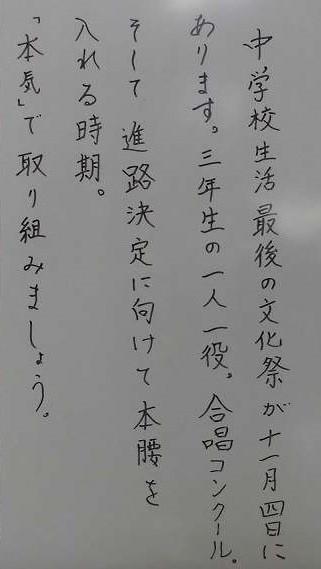 中学校生活最後の文化祭が十一月四日に
あります。三年生の一人一役。合唱コンクール。
そして進路決定に向けて本腰を
入れる時期。
「本気」で取り組みましょう。